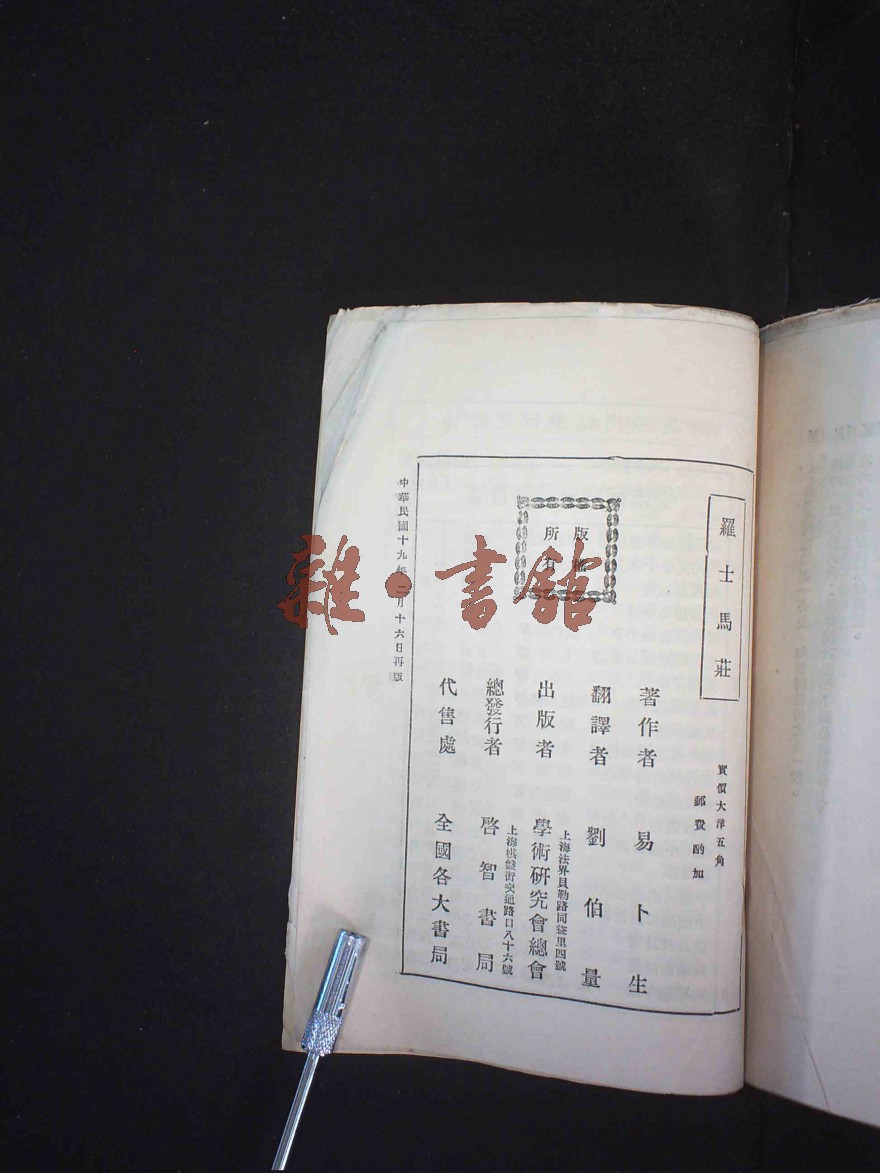 羅士馬莊
實價大洋五角
郵費酌加
著作者 易卜生
翻譯者 劉伯量
上海法界貝勒路同益里四號
出版者 學術研究會總會
上海棋盤街交通路口八十六號
總發行者 啓智書局
代售處 全國各大書局
版權
所有
中華民國十九年二月十六日再版
雜·書館